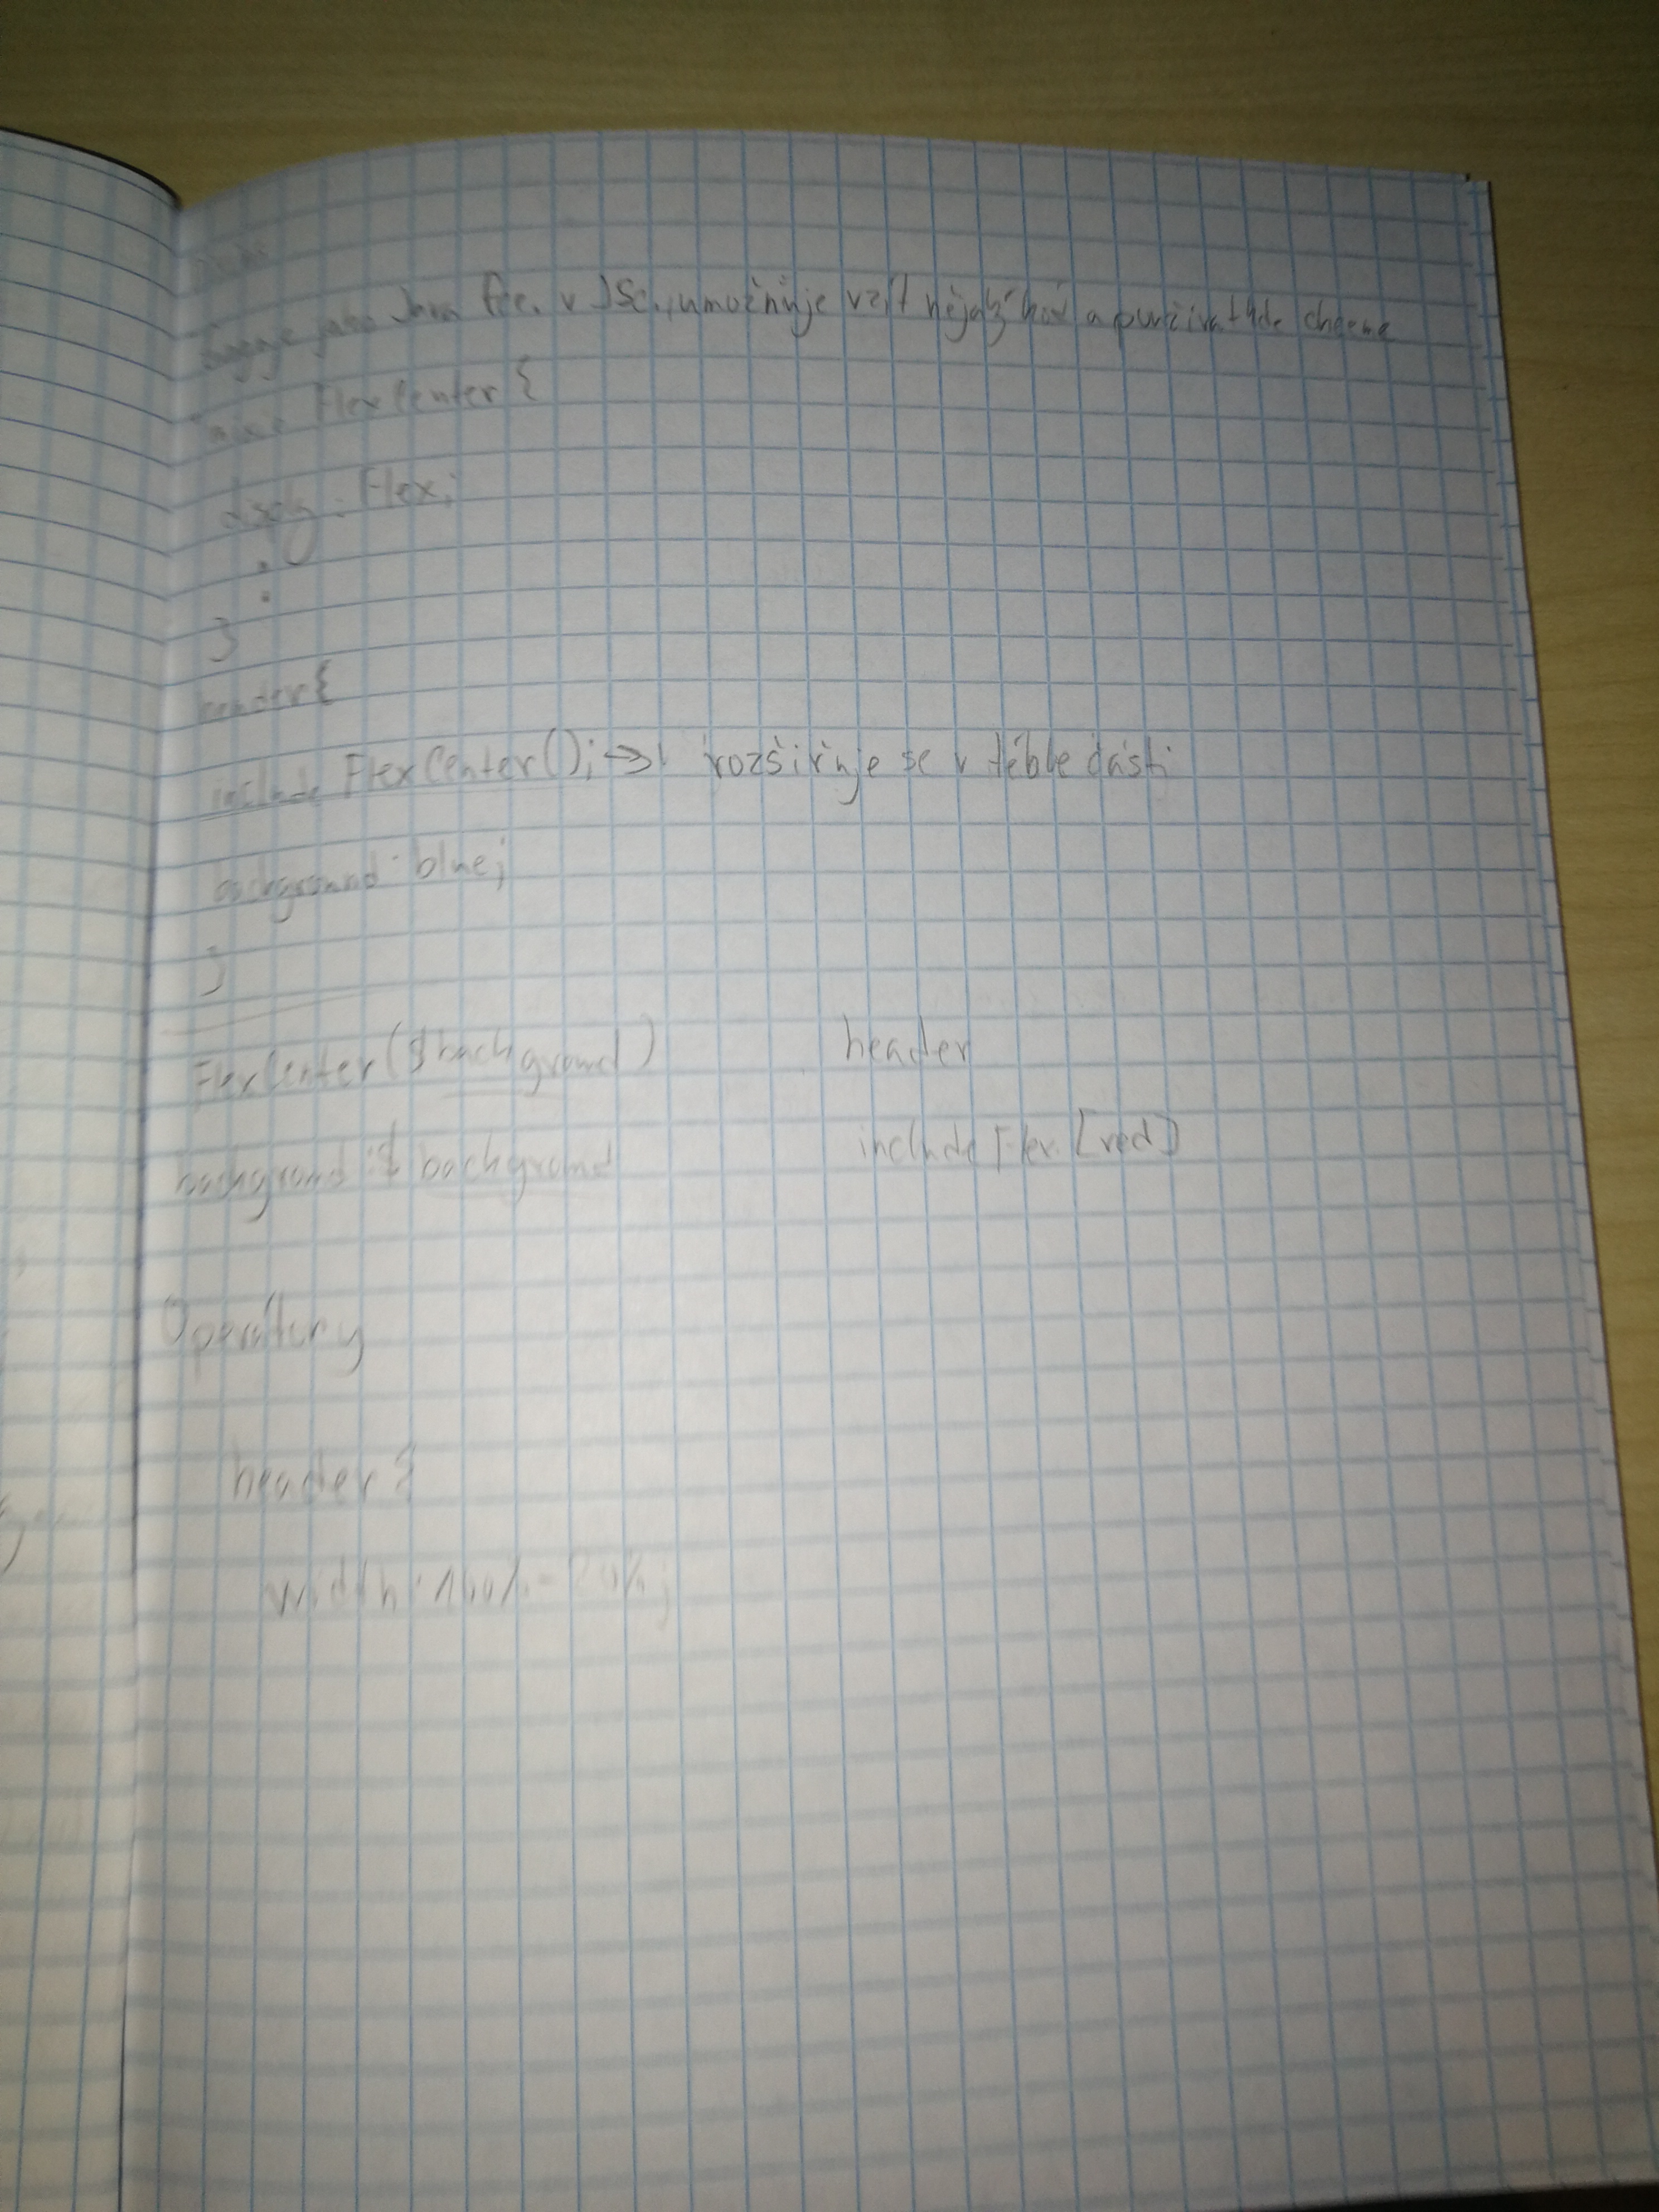 jako Java fce. v JSc., umožnňje vzít nějaký kód a používat kde chceme
FlexCenter {
disply : Flex;
.
.
}
header{
include FlexCenter(); → rozšiřuje se v téhle části
background: blue;
}
FlexCenter($background) header
background :$ background include Flex. [red]
Operátory
header {
width: 100% - 20%;